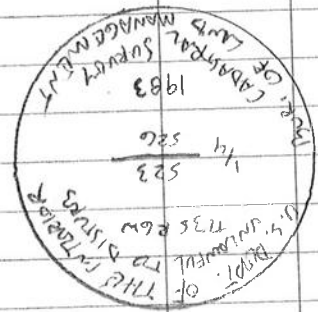 U.S. DEPT. OF THE INTERIOR
UNLAWFUL TO DISTURB
T13S R6W
1/4 S23
S26
1983
CADASTRAL SURVEY
BUR. OF LAND MANAGEMENT